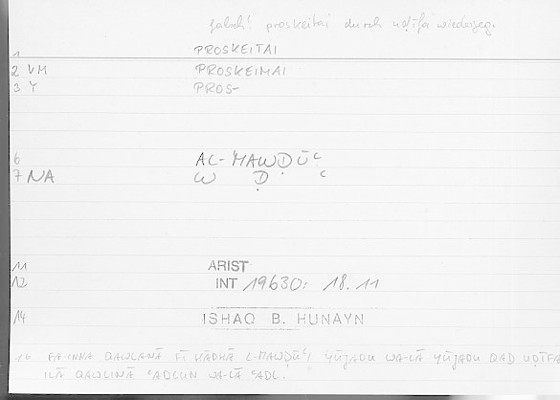 falsch! proskeitai durch uḍīfa wiedergeg.
1 PROSKEITAI
2 VM PROSKEIMAI
3 Y PROS-
6 AL-MAWḌŪʿ
7 NA W Ḍ ʿ
11 ARIST
12 INT 19630: 18.11
14 ISHAQ B. HUNAYN
16 FA-INNA QAWLANĀ FĪ HĀḎHĀ L-MAWḌŪʿI YŪǦADU WA-LĀ YŪǦADU QAD UḌĪFA
ILĀ QAWLINĀ ʿADLUN WA-LĀ ʿADL.